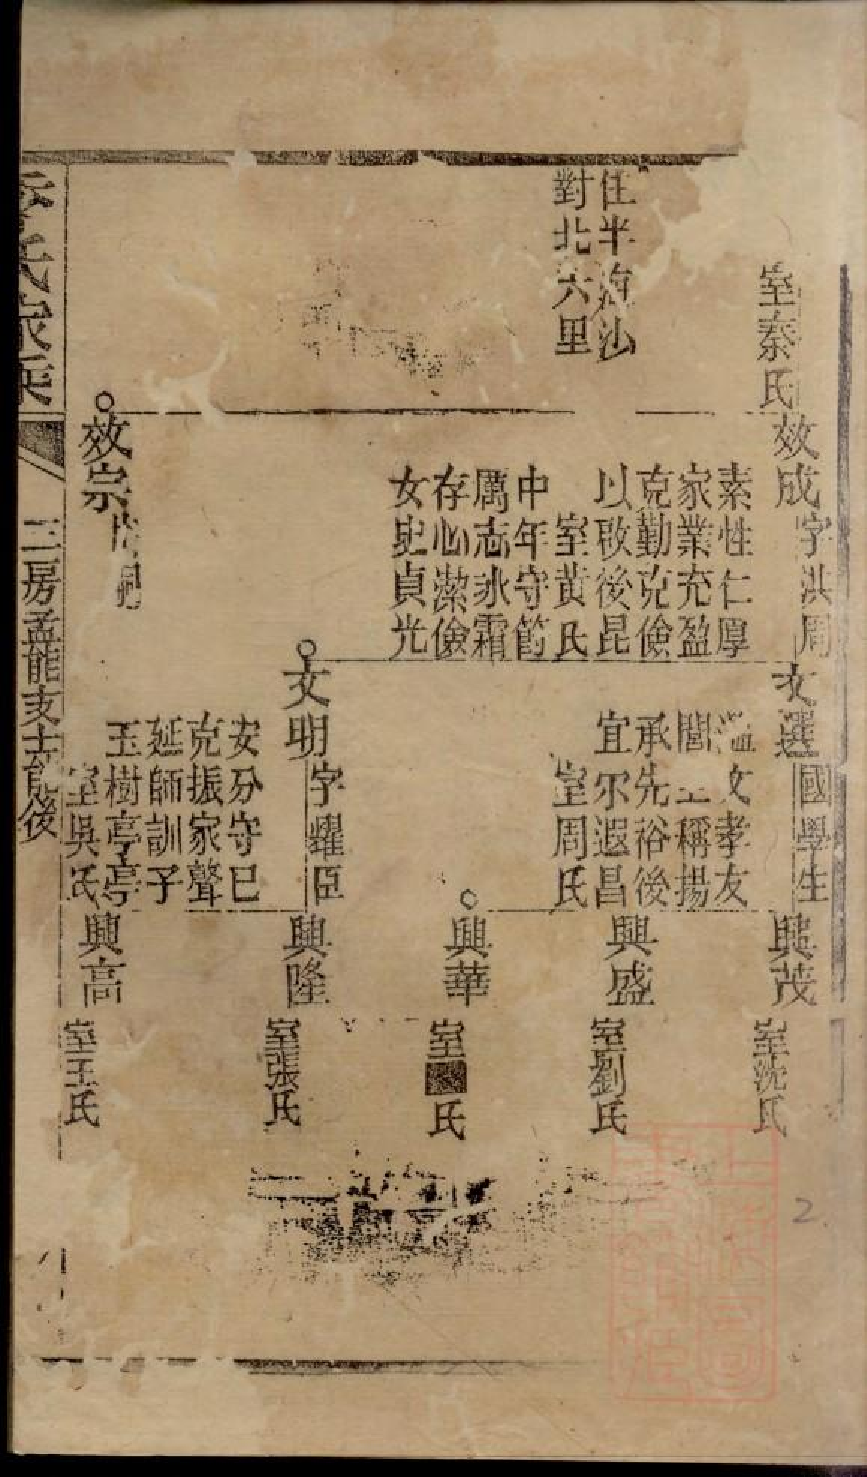 室秦氏
住半洍沙
對北六里
效成
字洪周
素性仁厚
家業充盈
克勤克儉
以啟後昆
室黃氏
中年守節
厲志氷霜
存心潔儉
女史貞光
效宗
文選
國學生
文孝友
稱揚
承先裕後
宜尔遐昌
室周氏
文明
字耀臣
安分守己
克振家聲
延師訓子
玉樹亭亭
室吳氏
興茂
室沈氏
興盛
室劉氏
興華
室 氏
興隆
室張氏
興高
室王氏
氏家乘
三房孟能支士能後
2.